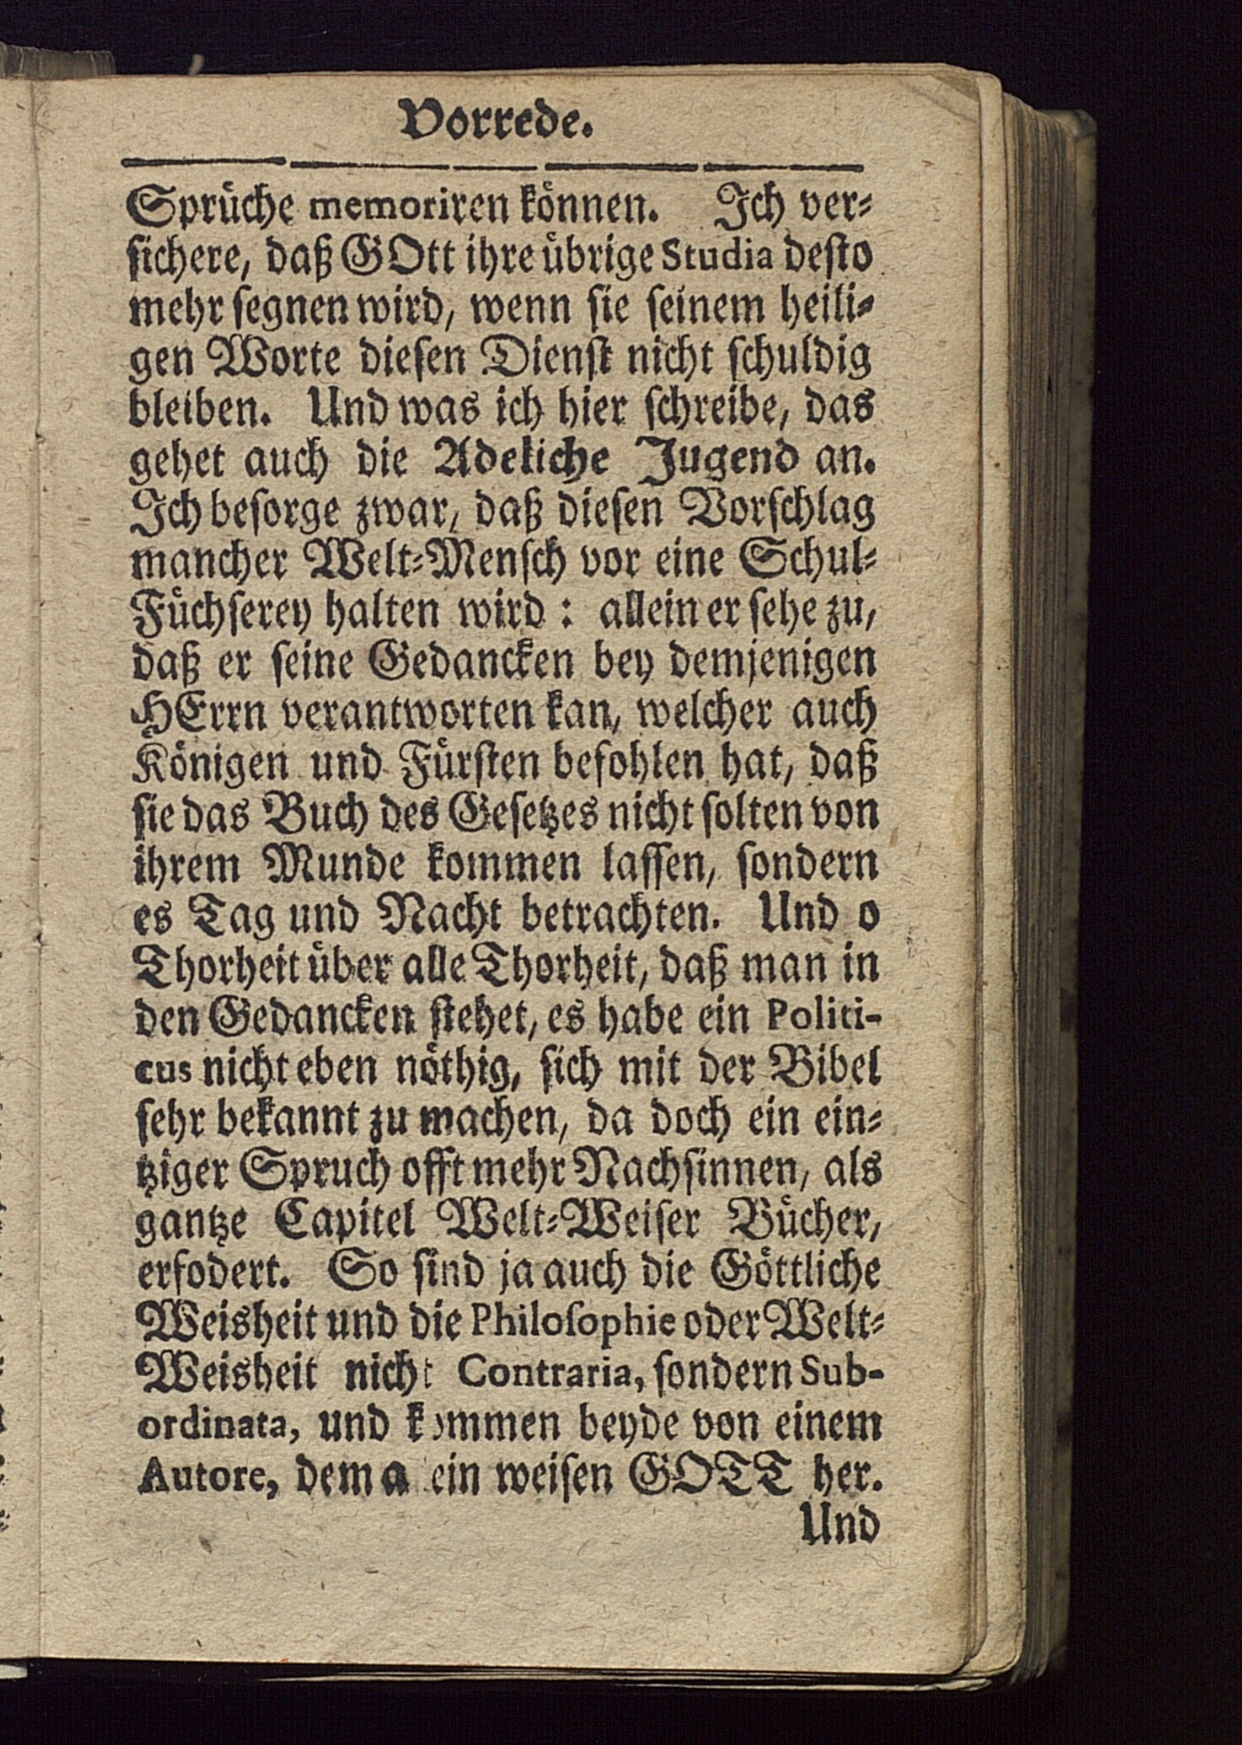 Vorrede.
Sprüche memoriren können. Ich ver-
sichere, daß GOtt ihre übrige Studia desto
mehr segnen wird, wenn sie seinem heili-
gen Worte diesen Dienst nicht schuldig
bleiben. Und was ich hier schreibe, das
gehet auch die Adeliche Jugend an.
Ich besorge zwar, daß diesen Vorschlag
mancher Welt-Mensch vor eine Schul-
Füchserey halten wird: allein er sehe zu,
daß er seine Gedancken bey demjenigen
HErrn verantworten kan, welcher auch
Königen und Fürsten befohlen hat, daß
sie das Buch des Gesetzes nicht solten von
ihrem Munde kommen lassen, sondern
es Tag und Nacht betrachten. Und o
Thorheit über alle Thorheit, daß man in
den Gedancken stehet, es habe ein Politi-
cus nicht eben nöthig, sich mit der Bibel
sehr bekannt zu machen, da doch ein ein-
tziger Spruch offt mehr Nachsinnen, als
gantze Capitel Welt-Weiser Bücher,
erfodert. So sind ja auch die Göttliche
Weisheit und die Philosophie oder Welt-
Weisheit nicht Contraria, sondern Sub-
ordinata, und kommen beyde von einem
Autore, dem allein weisen GOTT her.
Und